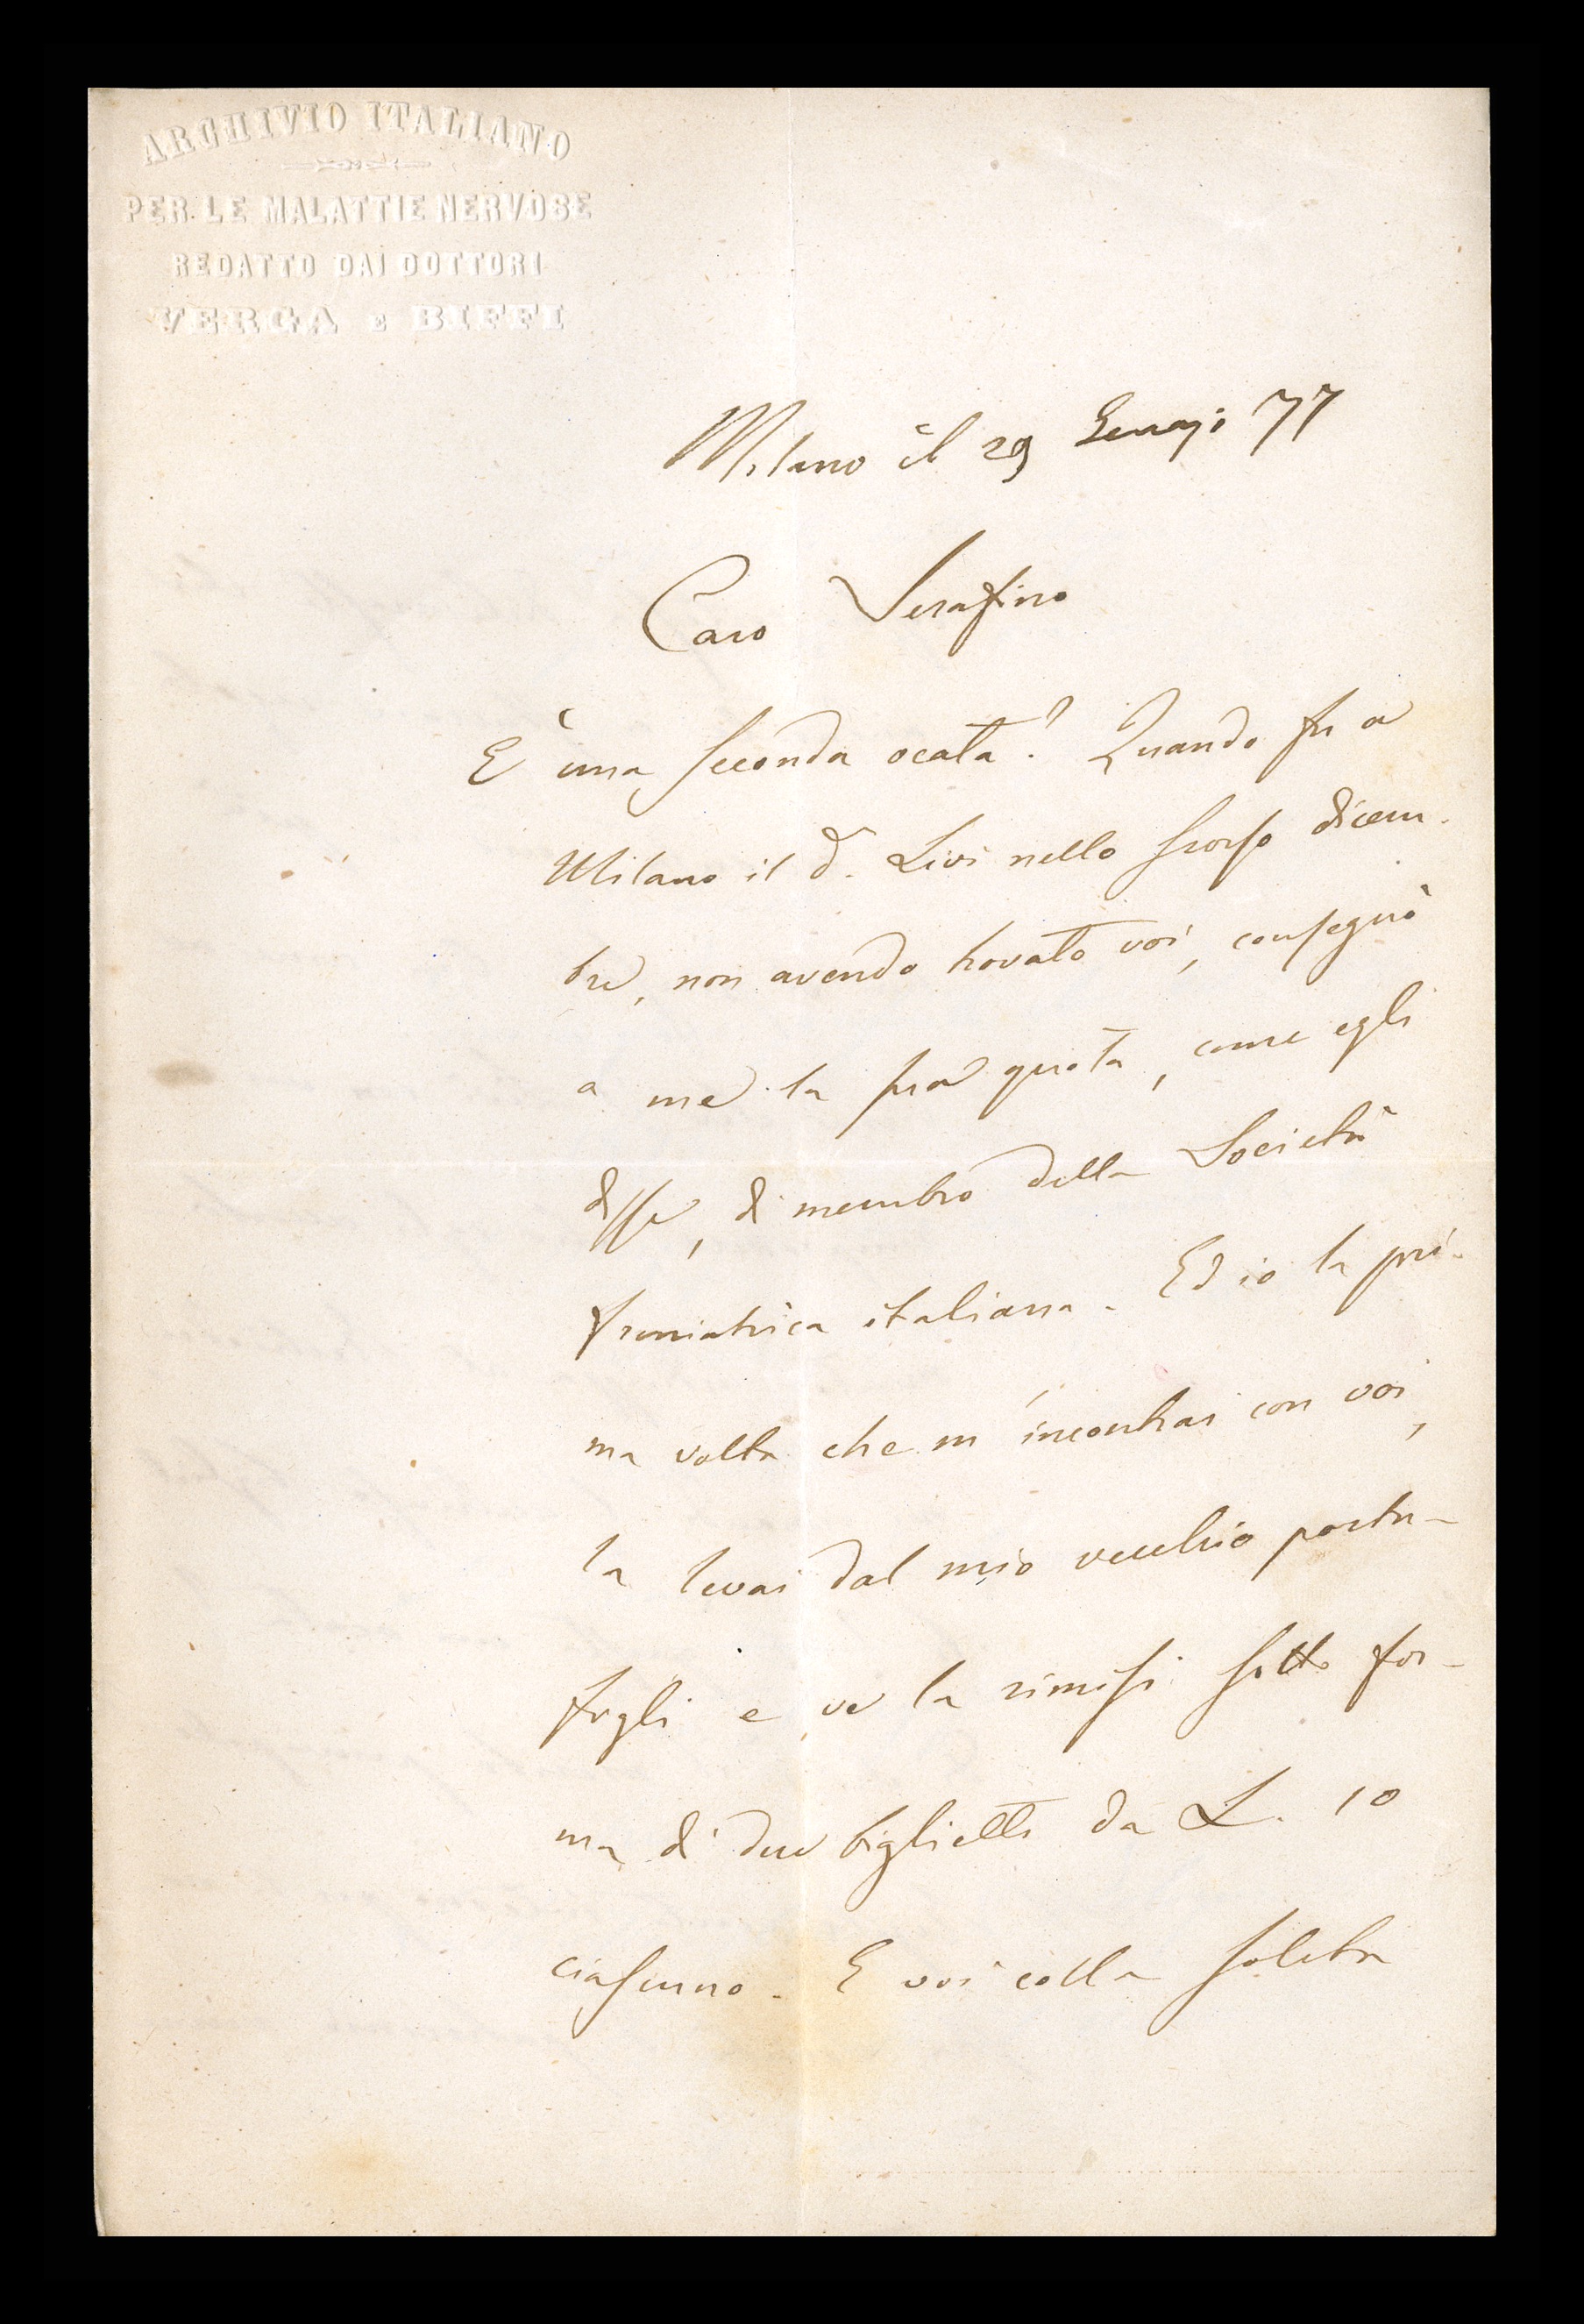 ARCHIVIO ITALIANO
PER LE MALATTIE NERVOSE
REDATTO DAI DOTTORI
VERGA E BIFFI
Milano il 29 Gennajo 77
Caro Serafino
È una seconda ocata? Quando fu a
Milano il d. Livi nello scorso dicem-
bre, non avendo trovato voi, consegnò
a me la sua quota, come egli
disse, di membro della Società
freniatrica italiana. Ed io la pri-
ma volta che m'incontrai con voi,
la levai dal mio vecchio porta-
fogli e ve la rimisi sotto for-
ma di due biglietti da L. 10
ciascuno. E voi colla solita